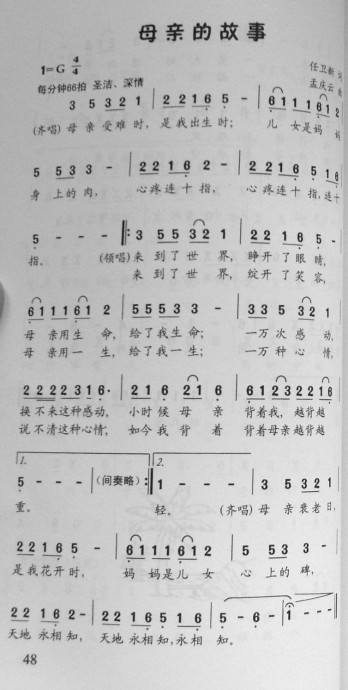 母亲的故事
1=G 4/4
任卫新 词
孟庆云
每分钟66拍 圣洁、深情
3 5 5321 | 2216 5 - | 61 11612
(齐唱)母 亲 受难 时, 是我出生 时; 儿 女是妈妈
5 533 - | 2216 2 - | 2216 5165
身 上的 肉, 心疼连十 指, 心疼连十 指,连十
5 - - - |: 3 55 321 | 2216 5 -
指. (领唱)来 到了 世 界, 睁开了眼 睛,
来 到了 世 界, 绽开了笑 容,
61 11 61 2 | 5553 3 - | 33 5 321
母 亲用生 命, 给了我生 命; 一万 次 感 动,
母 亲用一 生, 给了我一 生; 一万 种 心 情,
2222 2316· | 2 1 6 21 6 | 61 23 2216
换不来这种感动, 小时 候 母 亲 背着我, 越背越
说不清这种心情, 如今 我 背 着 背着母亲越背越
1. 2.
5 - - - (间奏略) :| 1 - - - | 3 5 5321
重。 轻。 (齐唱)母 亲 衰老 日,
2216 5 - | 61 11 61 2 | 5 533 -
是我花开 时, 妈 妈是儿 女 心 上的 碑,
22 162 - | 22 165 165 | 5 - 6 - | 1 - - -
天地 永相知, 天地 永相知,永相 知。
48